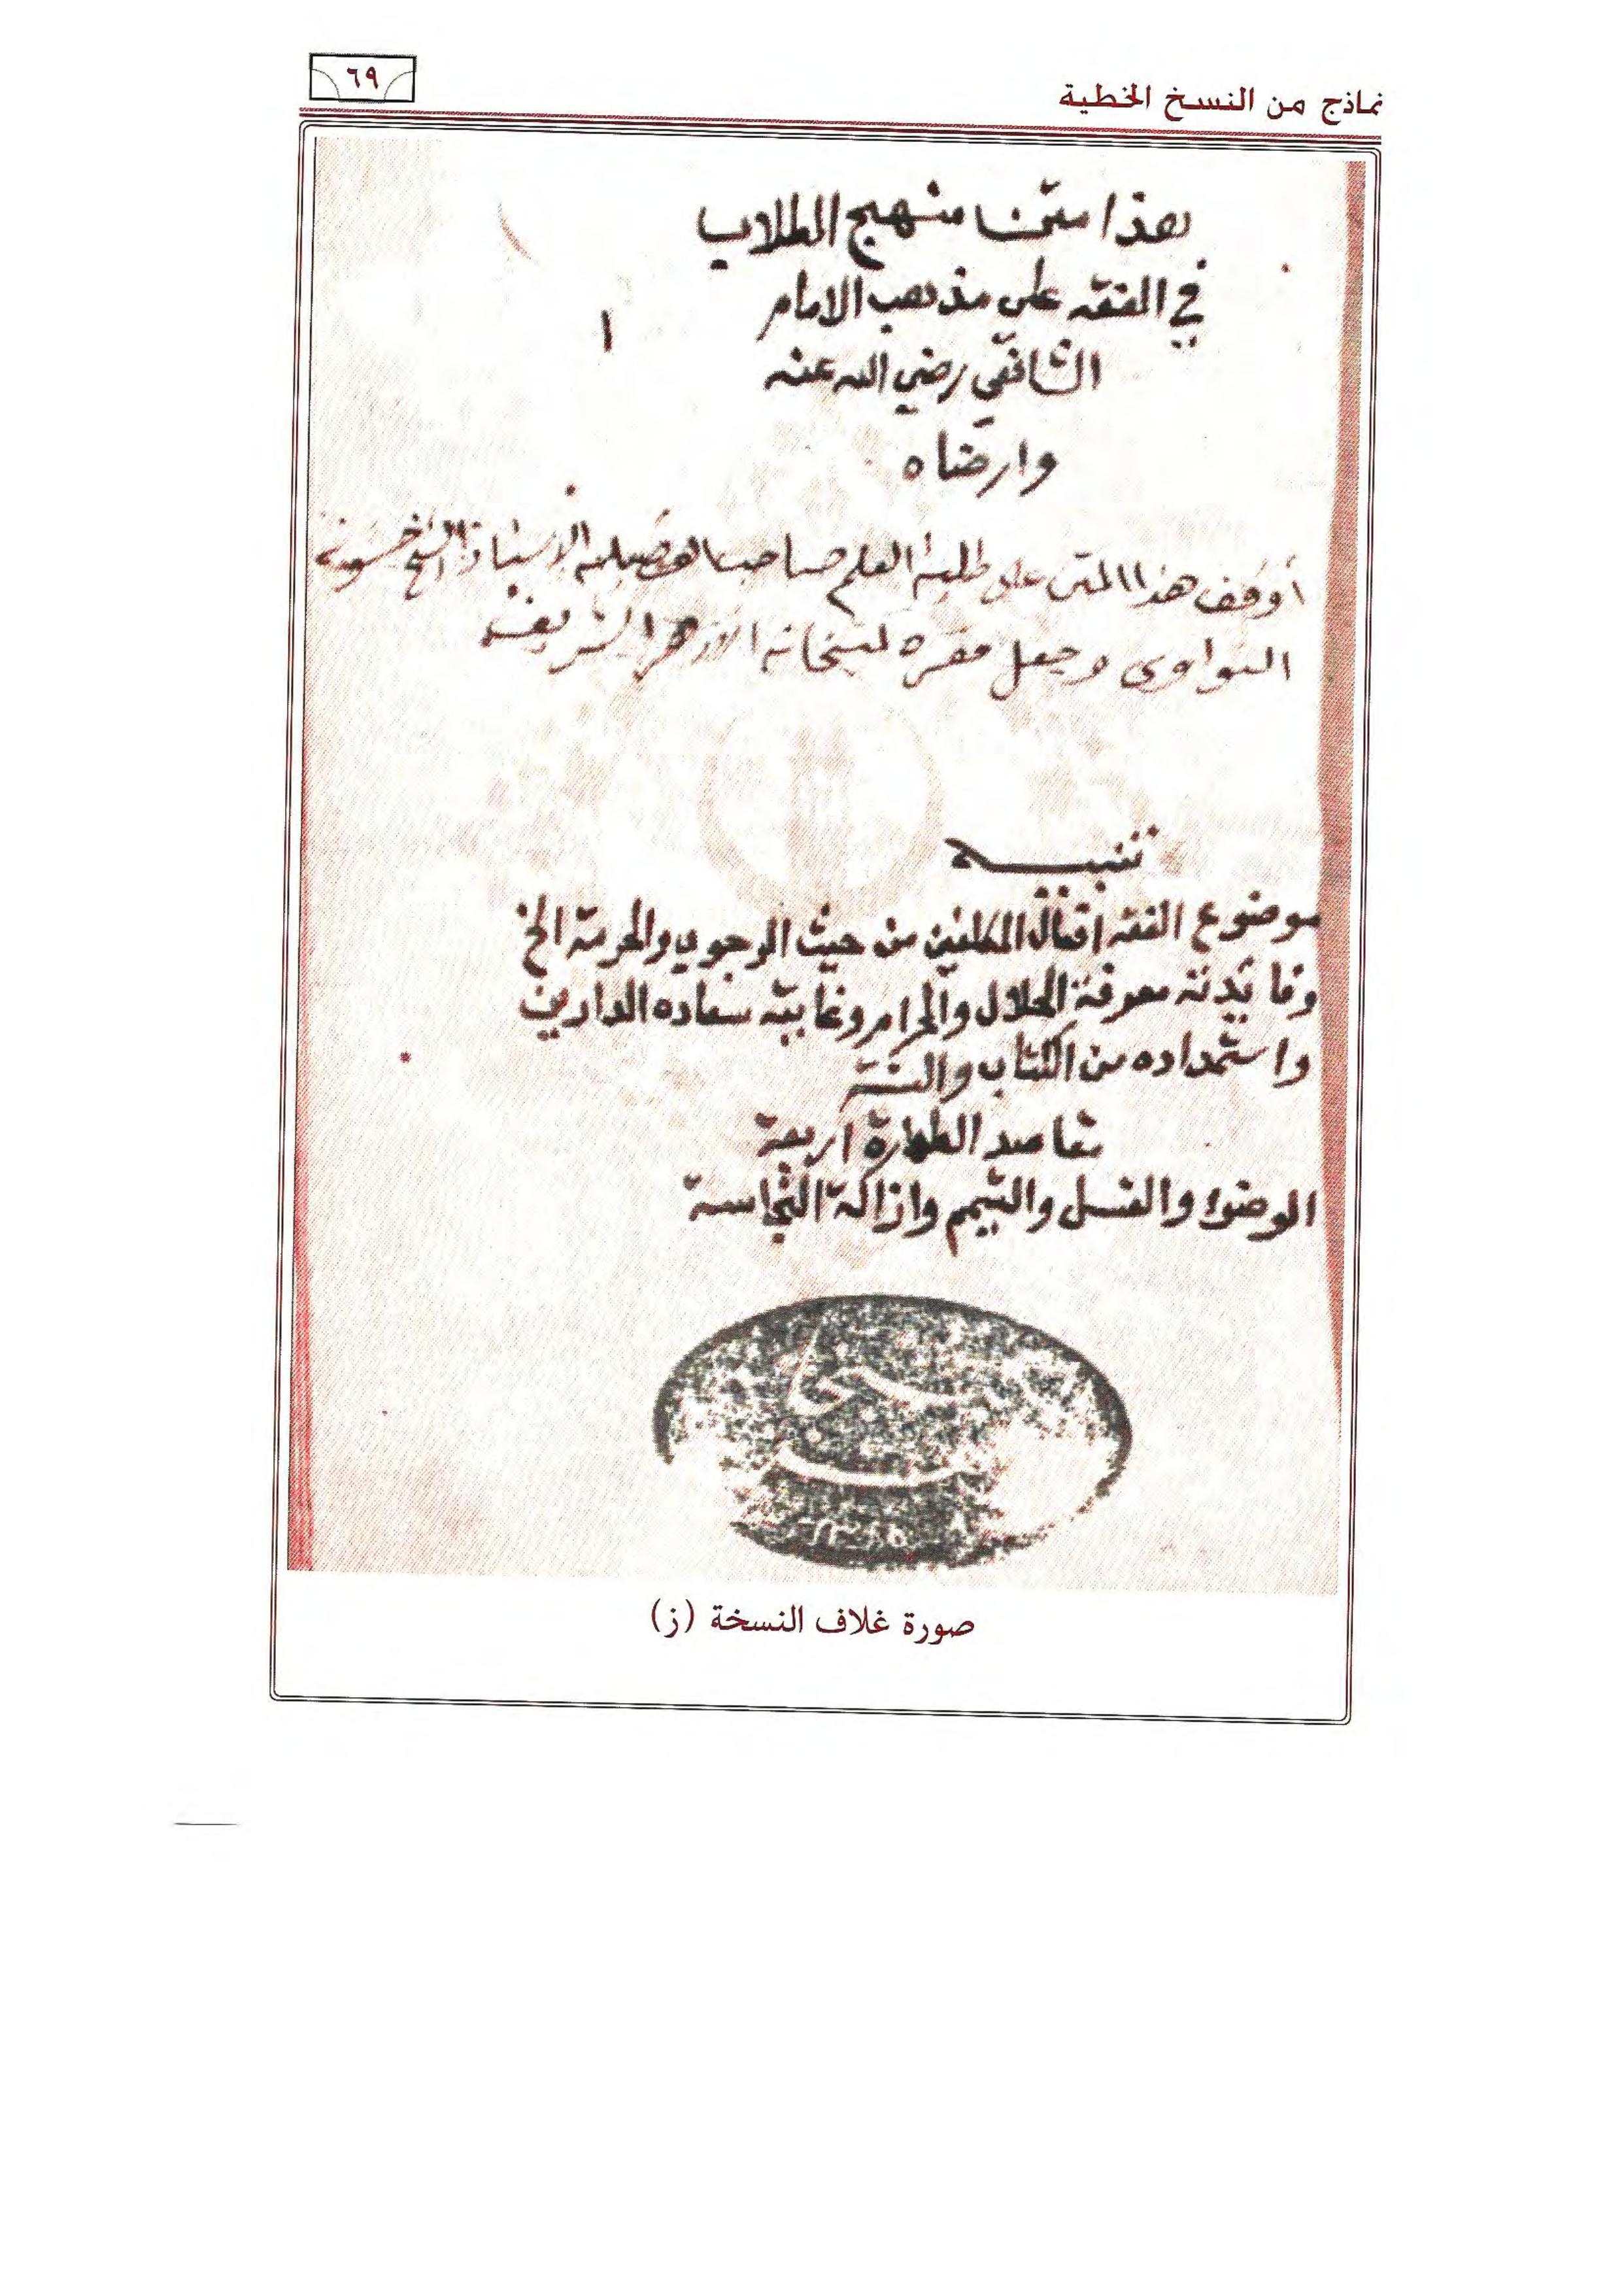 نماذج من النسخ الخطية
٦٩
هذا متن منهج الطلاب
في الفقه على مذهب الامام
١
الشافعي رضي الله عنه
وارضاه
أوقف هذا المتن على طلبة العلم صاحب الفضيلة الاستاذ الشيخ حسونه
النواوى وجعل مقره كتبخانة الازهر الشريف
تنبيه
موضوع الفقه افعال المكلفين من حيث الوجوب والحرمة الخ
وفائدته معرفة الحلال والحرام وغايته سعاده الدارين
واستمداده من الكتاب والسنة
مقاصد الطهارة اربعة
الوضوء والغسل والتيمم وازالة النجاسة
صورة غلاف النسخة (ز)